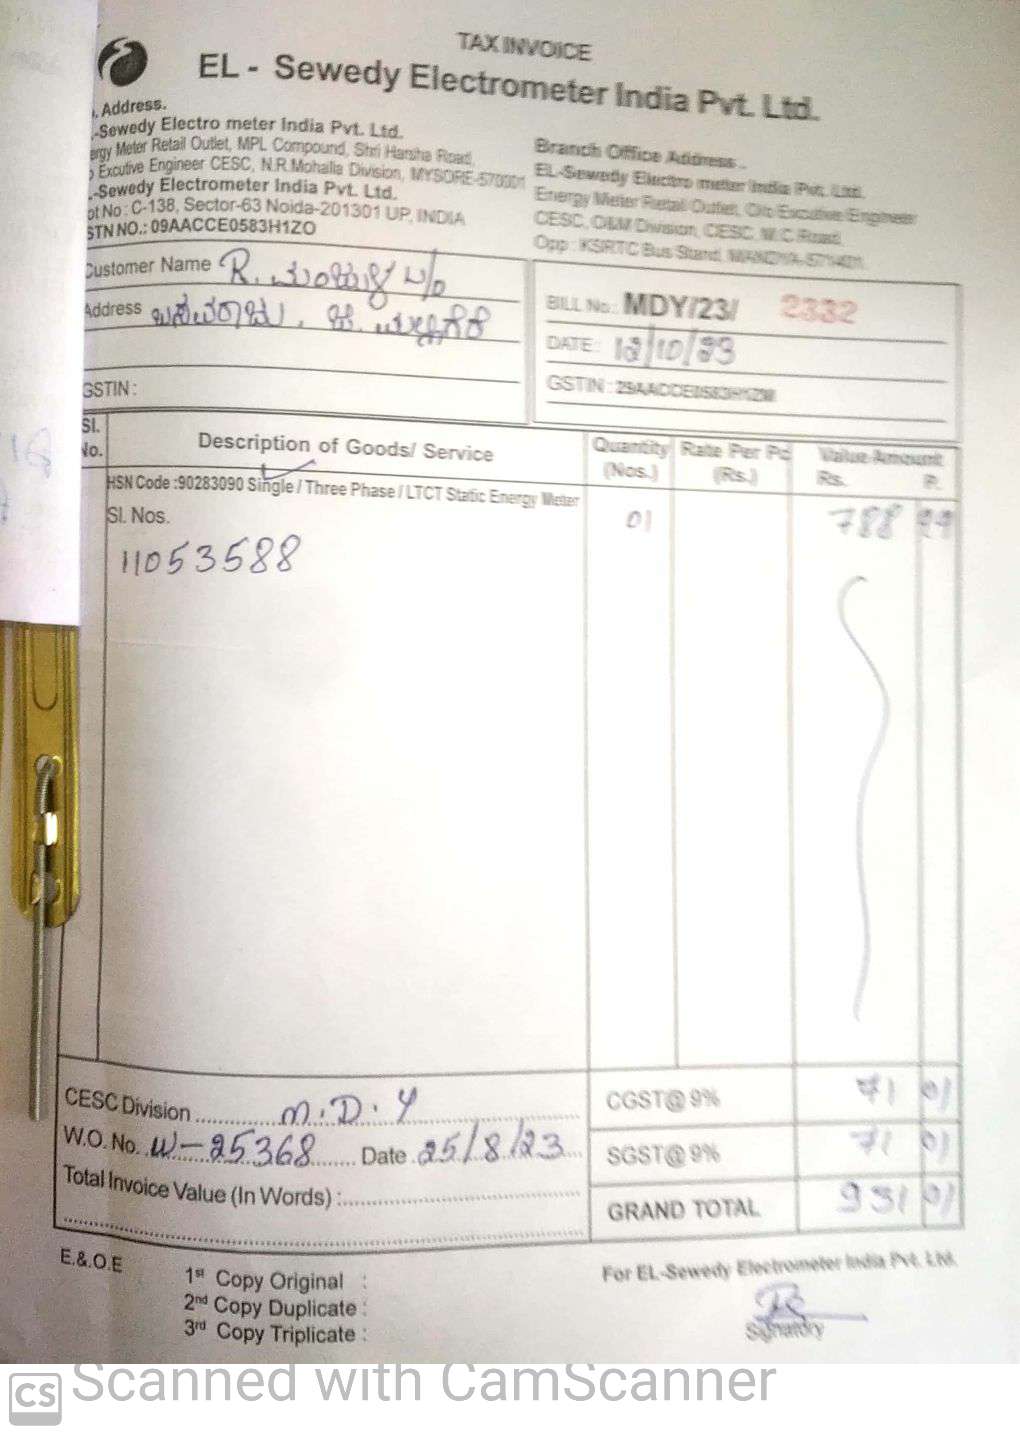 TAX INVOICE
EL - Sewedy Electrometer India Pvt. Ltd.
Address.
-Sewedy Electro meter India Pvt. Ltd.
ergy Meter Retail Outlet, MPL Compound, Shri Harsha Road,
Excutive Engineer CESC, N.R.Mohalla Division, MYSORE-570001
-Sewedy Electrometer India Pvt. Ltd.
ot No : C-138, Sector-63 Noida-201301 UP, INDIA
STN NO.: 09AACCE0583H1ZO
Branch Office Address.
EL-Sewedy Electro meter India Pvt. Ltd.
Energy Meter Retail Outlet, O/c Excutive Engineer
CESC, O&M Division, CESC, M.C Road,
Opp : KSRTC Bus Stand, MANDYA-571401.
Customer Name R.
Address
GSTIN :
BILL No.: MDY/23/ 2332
DATE: /10/23
GSTIN : 29AACCE0583H1ZM
Sl. No.
Description of Goods/ Service
Quantity (Nos.)
Rate Per Pc (Rs.)
Value Amount
Rs. P.
HSN Code :90283090 Single / Three Phase / LTCT Static Energy Meter
Sl. Nos.
11053588
01
788 99
CESC Division M.D.Y
W.O. No. W-25368 Date 25/8/23
Total Invoice Value (In Words) :
CGST@ 9% 71 01
SGST@ 9% 71 01
GRAND TOTAL 931 01
E.&.O.E
1st Copy Original :
2nd Copy Duplicate :
3rd Copy Triplicate :
For EL-Sewedy Electrometer India Pvt. Ltd.
Signatory
CS Scanned with CamScanner